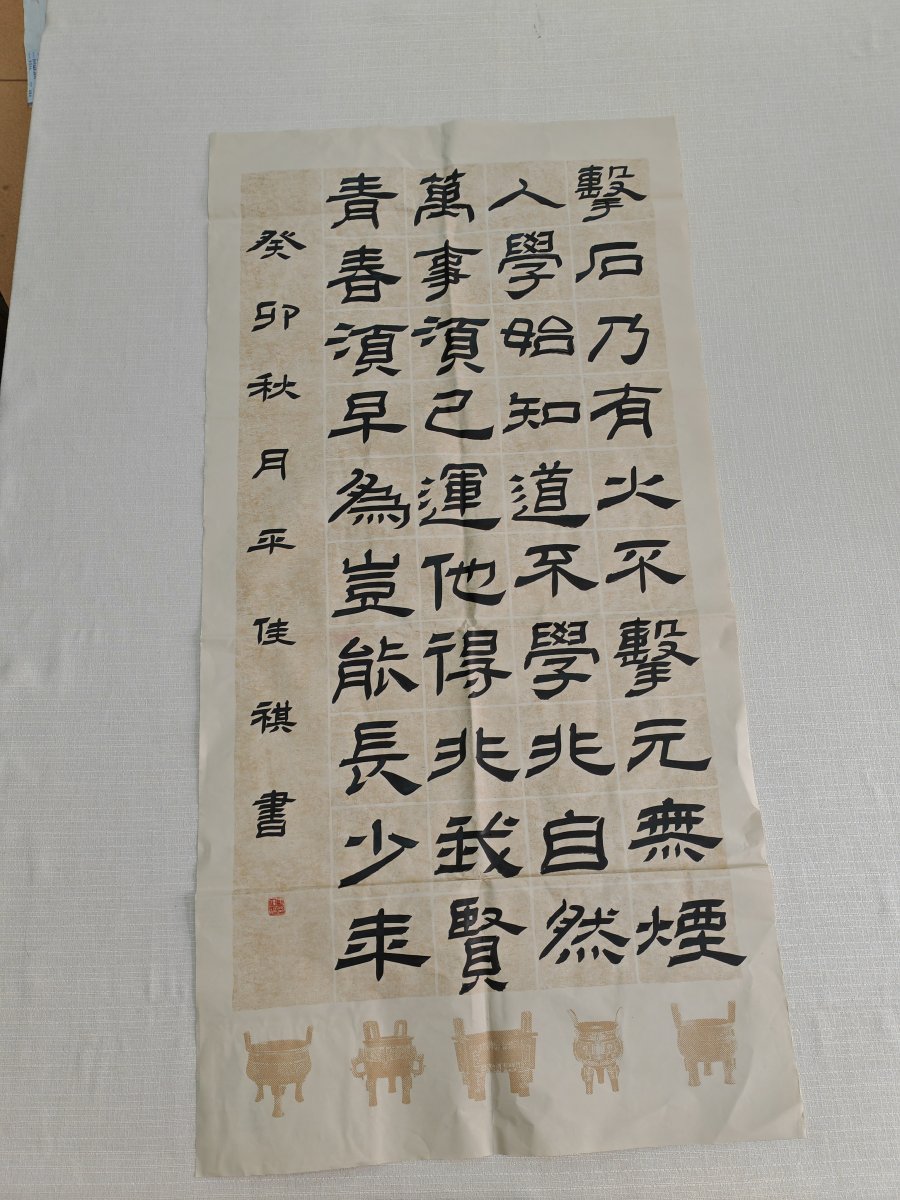 擊石乃有火不擊元無煙
人學始知道不學非自然
萬事須己運他得非我賢
青春須早為豈能長少年
癸卯秋月平佳祺書